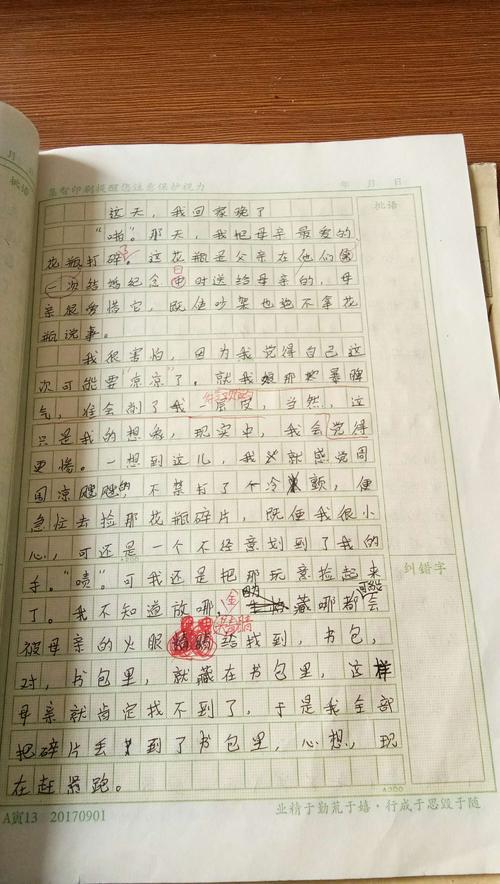 月 日
批语
墨智印刷提醒您注意保护视力
年 月 日
批语
这天，我回家晚了
“啪。”那天，我把母亲最爱的
花瓶打碎。这花瓶是父亲在他们第
一次结婚纪念日时送给母亲的，母
亲很爱惜它，既使吵架也绝不拿花
瓶说事。
我很害怕，因为我觉得自己这
次可能要“凉凉”了。就我娘那暴脾
气，准会削了我一层皮，当然，这
只是我的想象，现实中，我会觉得
更惨。一想到这儿，我就感觉周
围凉飕飕的，不禁打了个冷颤，便
急忙去捡那花瓶碎片，既便我很小
心，可还是一个不经意划到了我的
手。“啧。”可我还是把那玩意捡起来
了。我不知道放哪，藏哪都可能会
被母亲的火眼金睛给找到，书包，
对，书包里，就藏在书包里，这样
母亲就肯定找不到了，于是我全部
把碎片丢到了书包里，心想，现
在赶紧跑。
纠错字
A寅13 20170901
业精于勤荒于嬉·行成于思毁于随